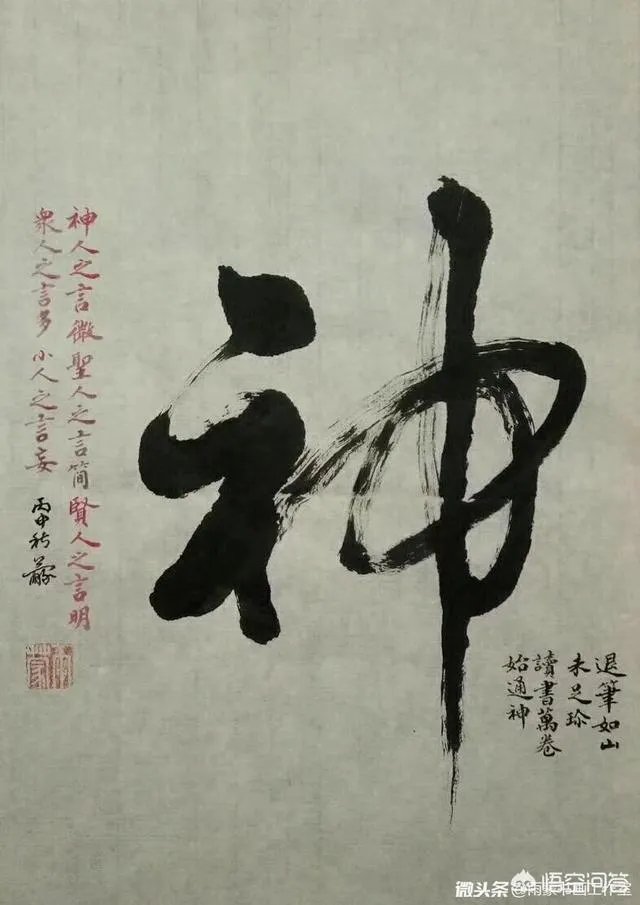 神
退筆如山
未足珍
讀書萬卷
始通神
神人之言微聖人之言簡賢人之言明
衆人之言多小人之言妄
丙申秋
微头条
悟空问答
@雨家书画工作室